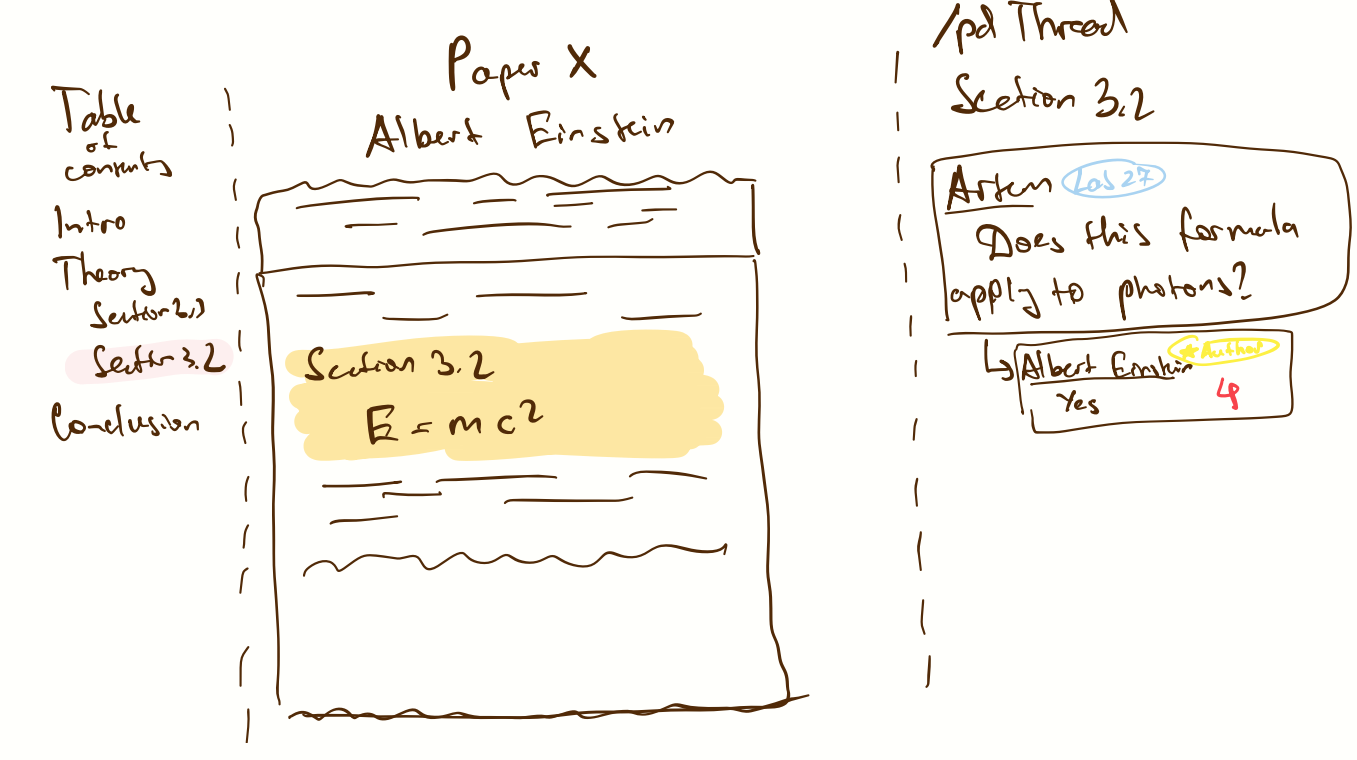 Table
of
contents
Intro
Theory
Section
Section 3.2
Conclusion
Paper X
Albert Einstein
Section 3.2
E = mc²
/pd Thread
Section 3.2
Artem Las 27
Does this formula
apply to photons?
Albert Einstein ★Author
Yes